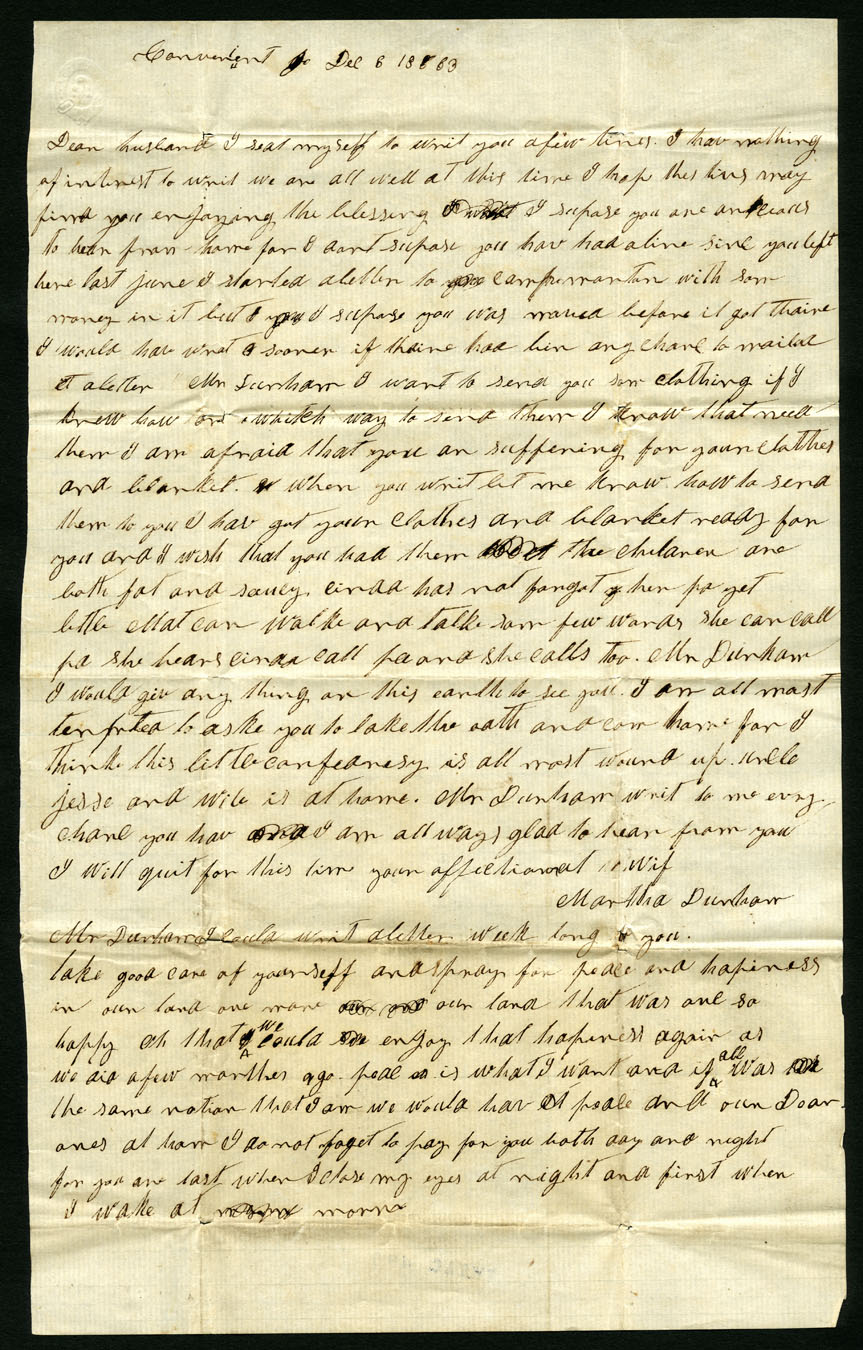 Convenient Dec 6 1863
Dear husband I seat myself to writ you afew lines. I hav nothing
of interest to writ we are all well at this time I hop thes lins may
find you enjoying the blessing I supose you are ancious
to hear from home for I dont supose you hav had aline sinc you left
here last june I started aletter to camp morton with som
money in it but I supose you was moved before it got thaire
I would hav wrot sooner if thaire had bin any chanc to mailed
aletter Mr Durham I want to send you som clothing if I
knew how or whitch way to send them I know that need
them I am afraid that you ar suffering for your clothes
and blanket. when you writ let me know how to send
them to you I hav got your clothes and blanket ready for
you and I wish that you had them the children are
both fat and saucy cinda has not forgot her pa yet
little Mat can walke and talke som few words she can call
pa she hears cinda call pa and she calls too. Mr Durham
I would giv any thing on this earth to see you. I am all most
tempted to aske you to take the oath and com home for I
think this little confedresy is all most wound up. uncle
jesse and wife is at home. Mr Durham writ to me evry
chanc you hav I am all ways glad to hear from you
I will quit for this time your affectionat wif
Martha Durham
Mr Durham I could writ aletter week long to you.
take good care of yourself and pray for peace and hapiness
in our land onc more our land that was onc so
happy oh that we could enjoy that hapiness again as
we did afew monthes ago. peac is what I want and if all was
the same notion that I am we would hav peace and our Dear
ones at hom I do not foget to pay for you both day and night
for you are last when I close my eyes at night and first when
I wake at morne